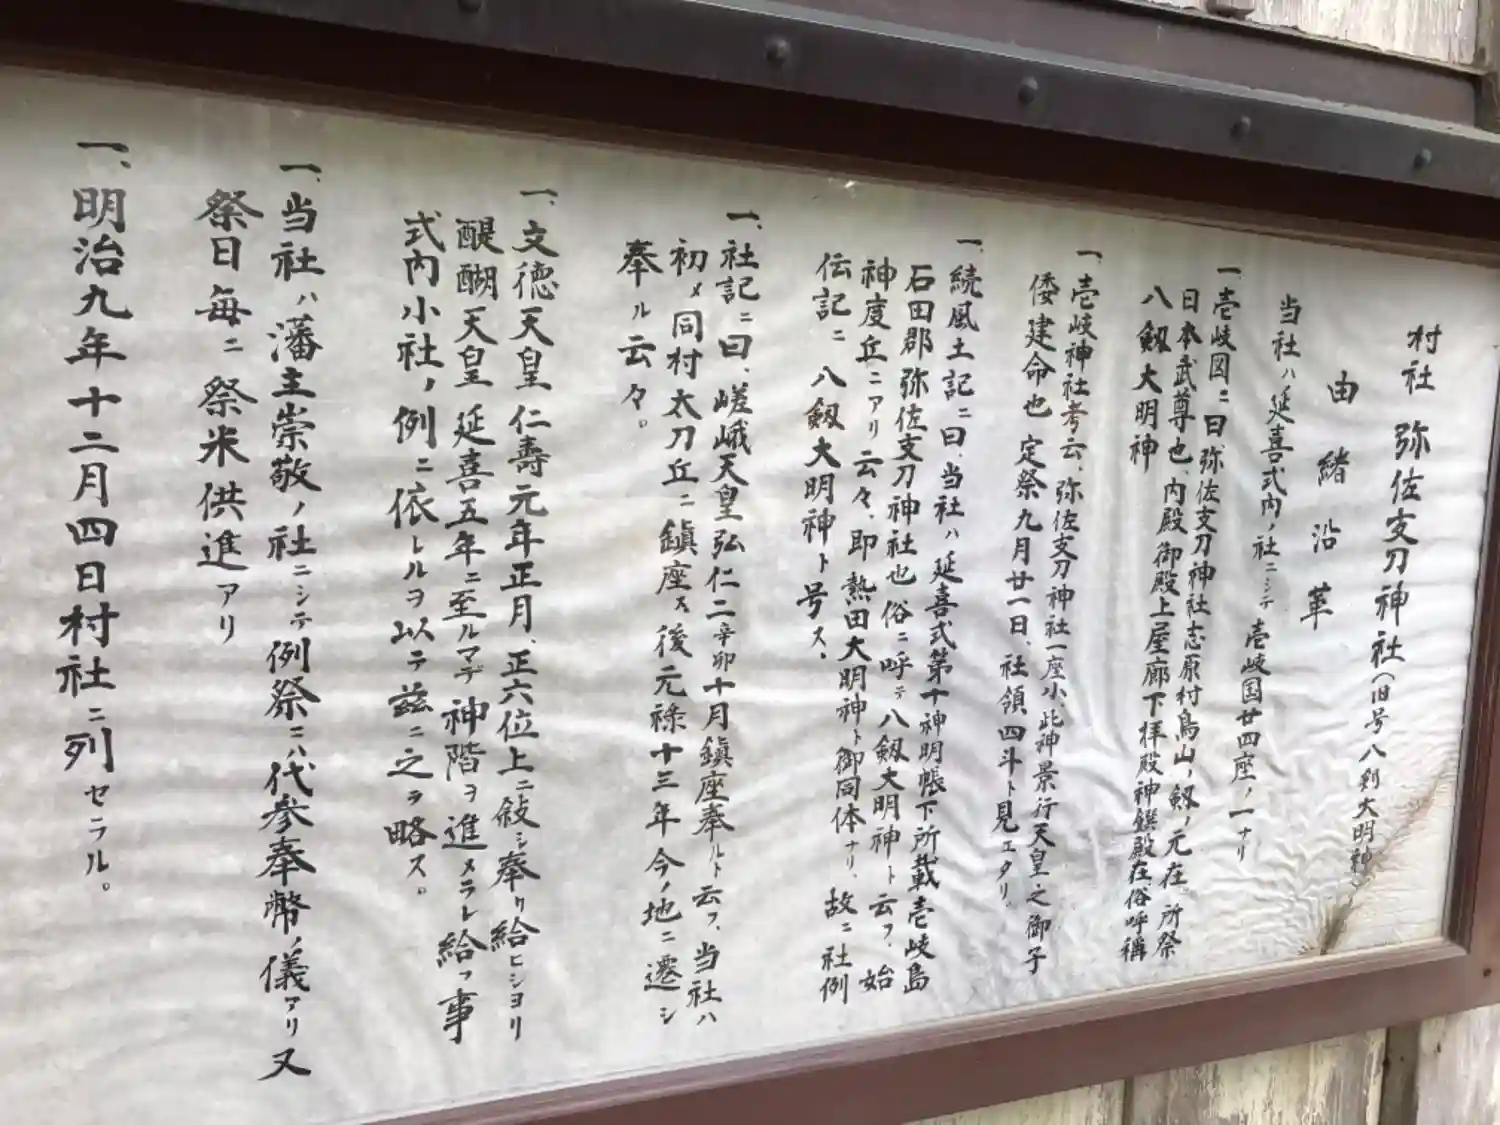 村社 弥佐支刀神社(旧号八剣大明神
由緒沿革
当社ハ延喜式内ノ社ニシテ壱岐国廿四座ノ一ナリ
一、壱岐図ニ曰、弥佐支刀神社志原村鳥山ノ剱ノ元在、所祭
日本武尊也、内殿御殿上屋廊下拝殿神饌殿在俗呼稱
八剱大明神
一、壱岐神社考云、弥佐支刀神社一座小、此神景行天皇之御子
倭建命也 定祭九月廿一日、社領四斗ト見エタリ、
一、続風土記ニ曰、当社ハ延喜式第十神明帳下所載壱岐島
石田郡弥佐支刀神社也 俗ニ呼テ八剱大明神ト云フ、始
神度丘ニアリ云々、即熱田大明神ト御同体ナリ、故ニ社例
伝記ニ 八剱大明神ト号ス、
一、社記ニ曰、嵯峨天皇弘仁二辛卯十月鎮座奉ルト云フ、当社ハ
初メ同村太刀丘ニ鎮座ス後元禄十三年今ノ地ニ遷シ
奉ル云々。
一、文徳天皇仁壽元年正月、正六位上ニ敍シ奉リ給ヒシヨリ
醍醐天皇延喜五年ニ至ルマデ神階ヲ進メラレ給フ事
式内小社ノ例ニ依レルヲ以テ茲ニ之ヲ略ス。
一、当社ハ藩主崇敬ノ社ニシテ例祭ニハ代参奉幣ノ儀アリ又
祭日毎ニ祭米供進アリ
一、明治九年十二月四日村社ニ列セラル。